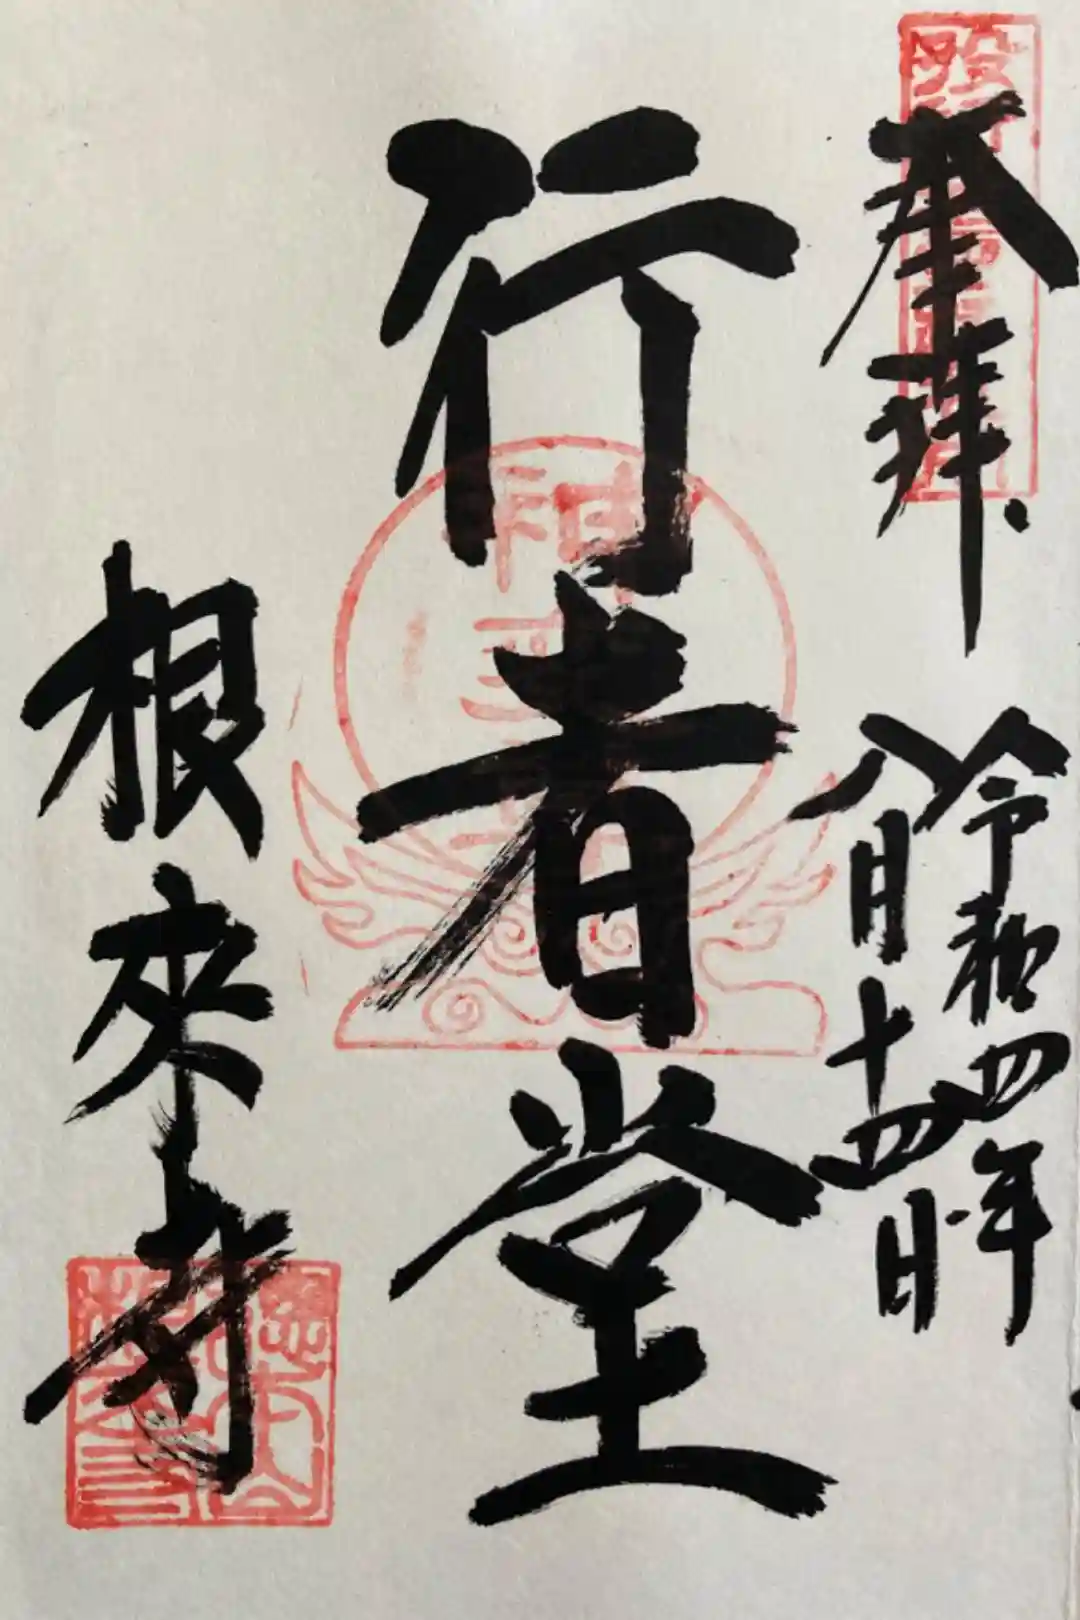 奉拝
令和四年
八月十四日
行者堂
根来寺